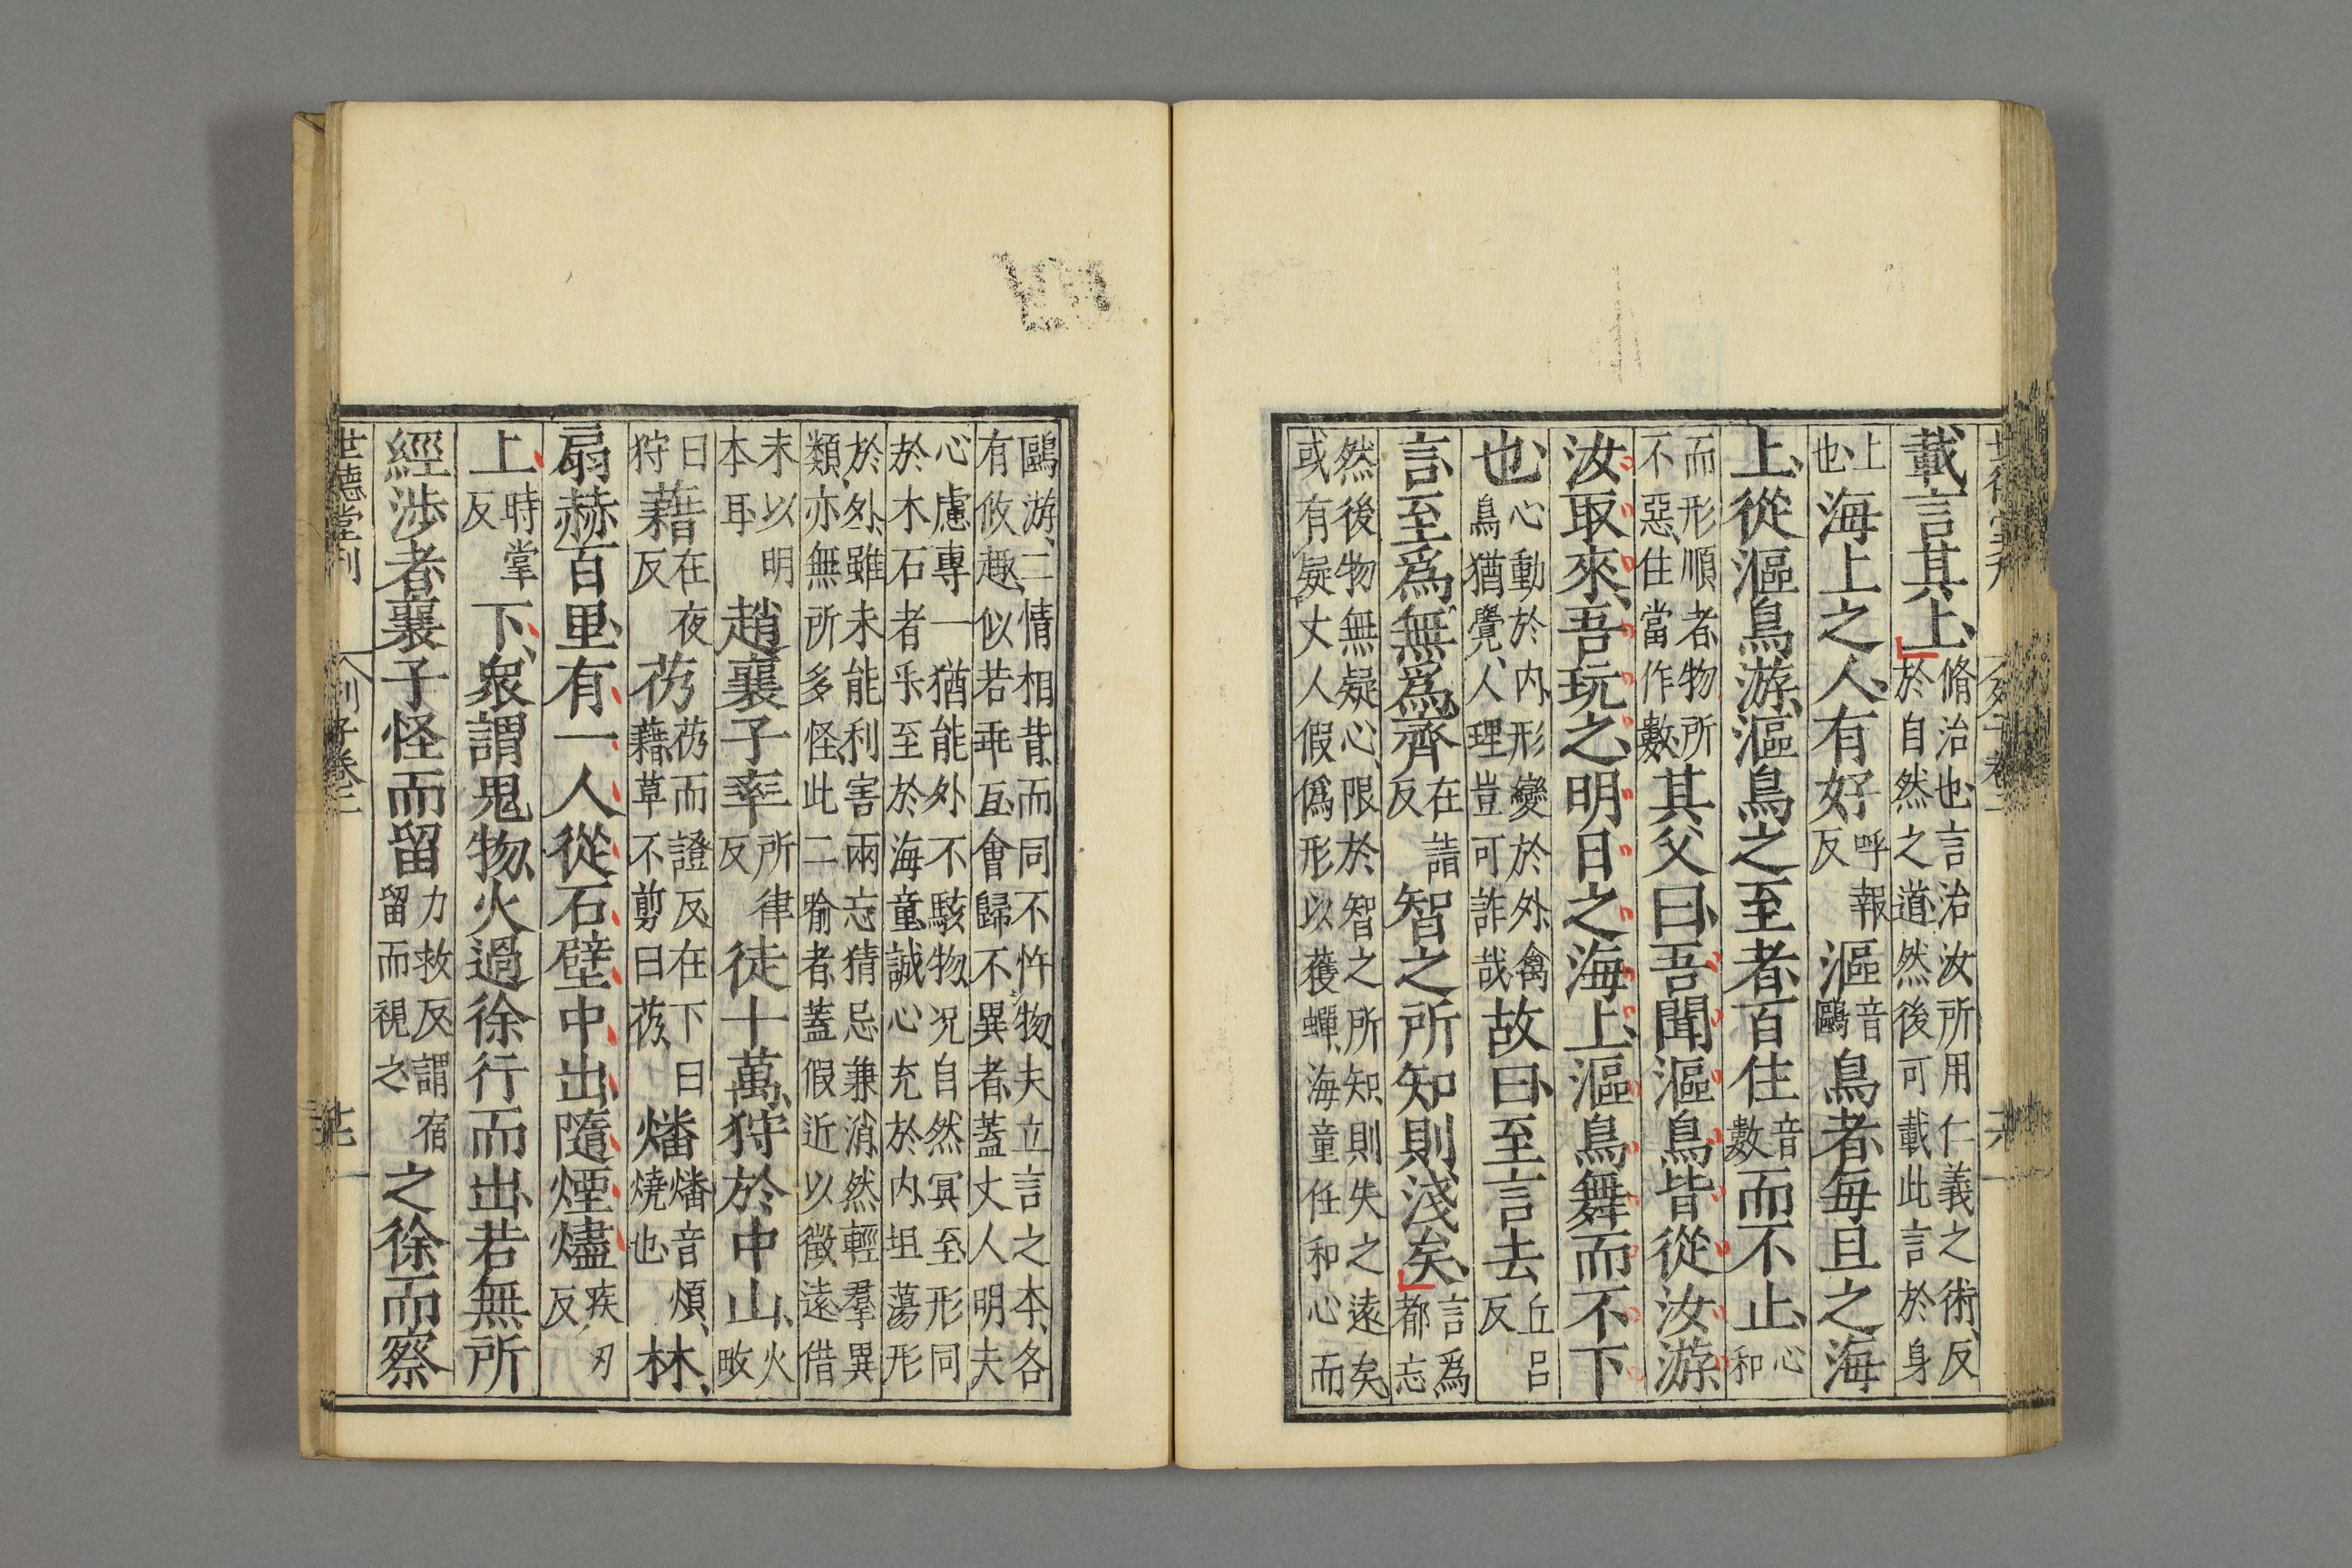 載言其上脩治也言治汝所用仁義之術反於自然之道然後可載此言於身
上也海上之人有好呼報反漚音鷗鳥者每旦之海
上從漚鳥游漚鳥之至者百住音數而不止心和
而形順者物所不惡住當作數其父曰吾聞漚鳥皆從汝游
汝取來吾玩之明日之海上漚鳥舞而不下
也心動於内形變於外禽鳥猶覺人理豈可詐哉故曰至言去丘呂反
言至爲無爲齊在詣反智之所知則淺矣言爲都忘
然後物無疑心限於智之所知則失之遠矣或有疑丈人假僞形以獲蟬海童任和心而
鷗游二情相背而同不忤物夫立言之本各有攸趣似若乖互會歸不異者蓋丈人明夫
心慮專一猶能外不駭物况自然冥至形同於木石者乎至於海童誠心充於内坦蕩形
於外雖未能利害兩忘猜忌兼消然輕羣異類亦無所多怪此二喻者蓋假近以徵遠借
末以明本耳趙襄子率所律反徒十萬狩於中山火畋
曰狩藉在夜反芿芿而證反在下曰藉草不剪曰芿燔燔音煩燒也林
扇赫百里有一人從石壁中出隨煙燼疾刃反
上時掌反下衆謂鬼物火過徐行而出若無所
經涉者襄子怪而留力救反謂宿留而視之之徐而察
世德堂刊 列子卷二 廿七